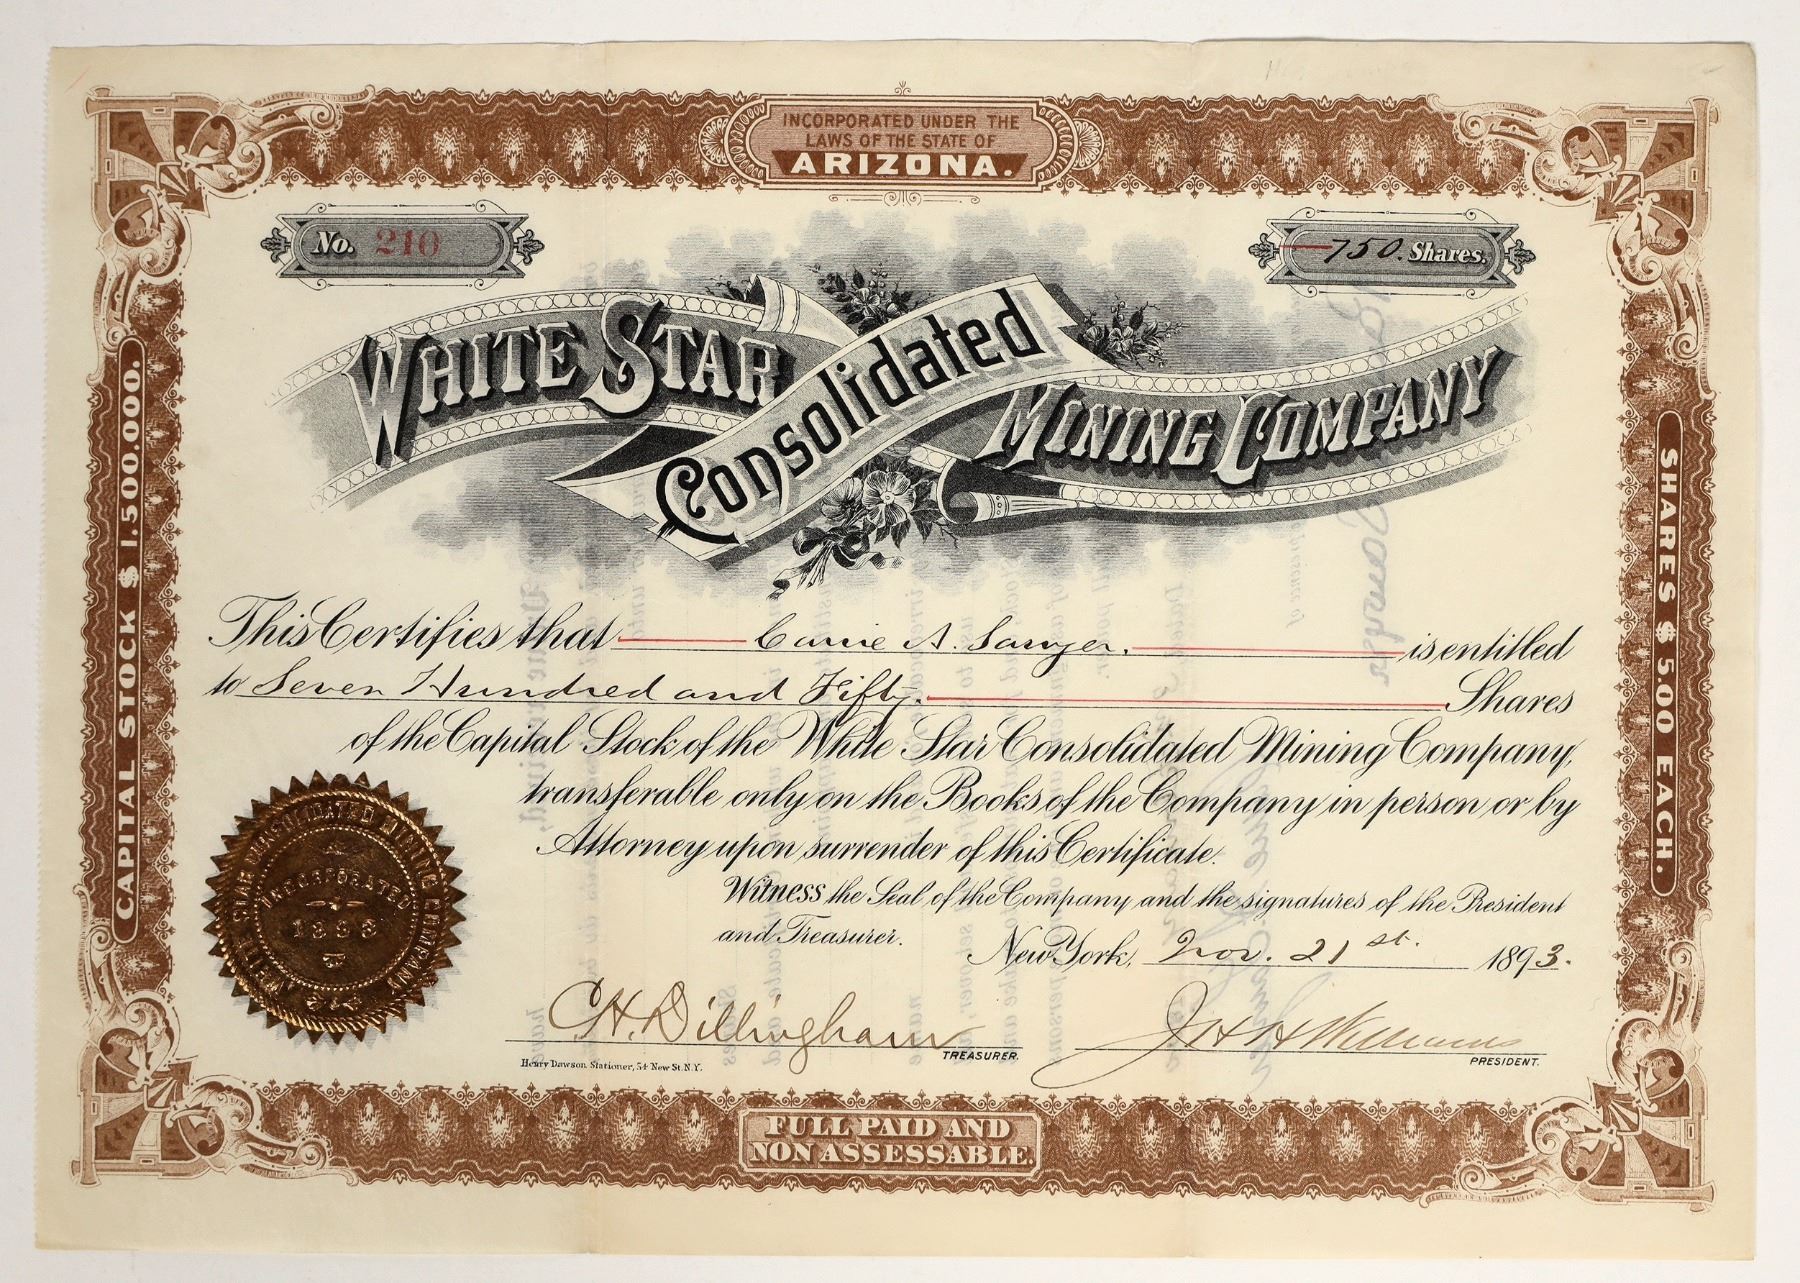 INCORPORATED UNDER THE
LAWS OF THE STATE OF
ARIZONA.
No. 210
750. Shares.
WHITE STAR
Consolidated
MINING COMPANY
CAPITAL STOCK $1,500,000.
SHARES $5.00 EACH.
This Certifies that Carrie A. Sawyer. is entitled
to Seven Hundred and Fifty. Shares
of the Capital Stock of the White Star Consolidated Mining Company,
transferable only on the Books of the Company in person or by
Attorney upon surrender of this Certificate.
Witness the Seal of the Company and the signatures of the President
and Treasurer.
New York, Nov. 21st. 1893.
WHITE STAR CONSOLIDATED MINING COMPANY
INCORPORATED
1893
C H Dillingham
TREASURER.
J H H Williams
PRESIDENT.
Henry Dawson Stationer, 54 New St. N.Y.
FULL PAID AND
NON ASSESSABLE.